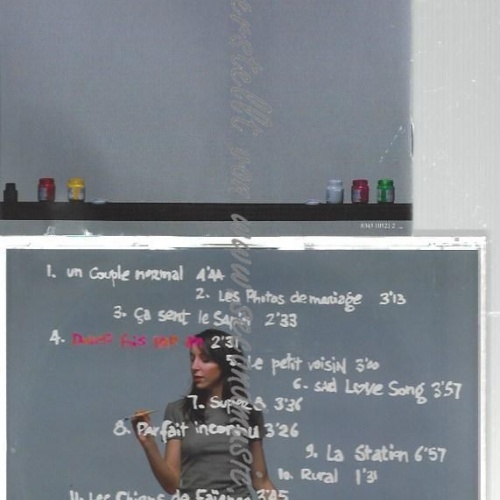 1. un Couple normal 4'44
2. Les Photos de mariage 3'13
3. ça sent le Sapin 2'33
4. 2'31
5. Le petit voisin 3'40
6. sad Love Song 3'57
7. Super 8 3'36
8. Parfait inconnu 3'26
9. La Station 6'57
10. Rural 1'31
11. Les Chiens de Faïence 3'45